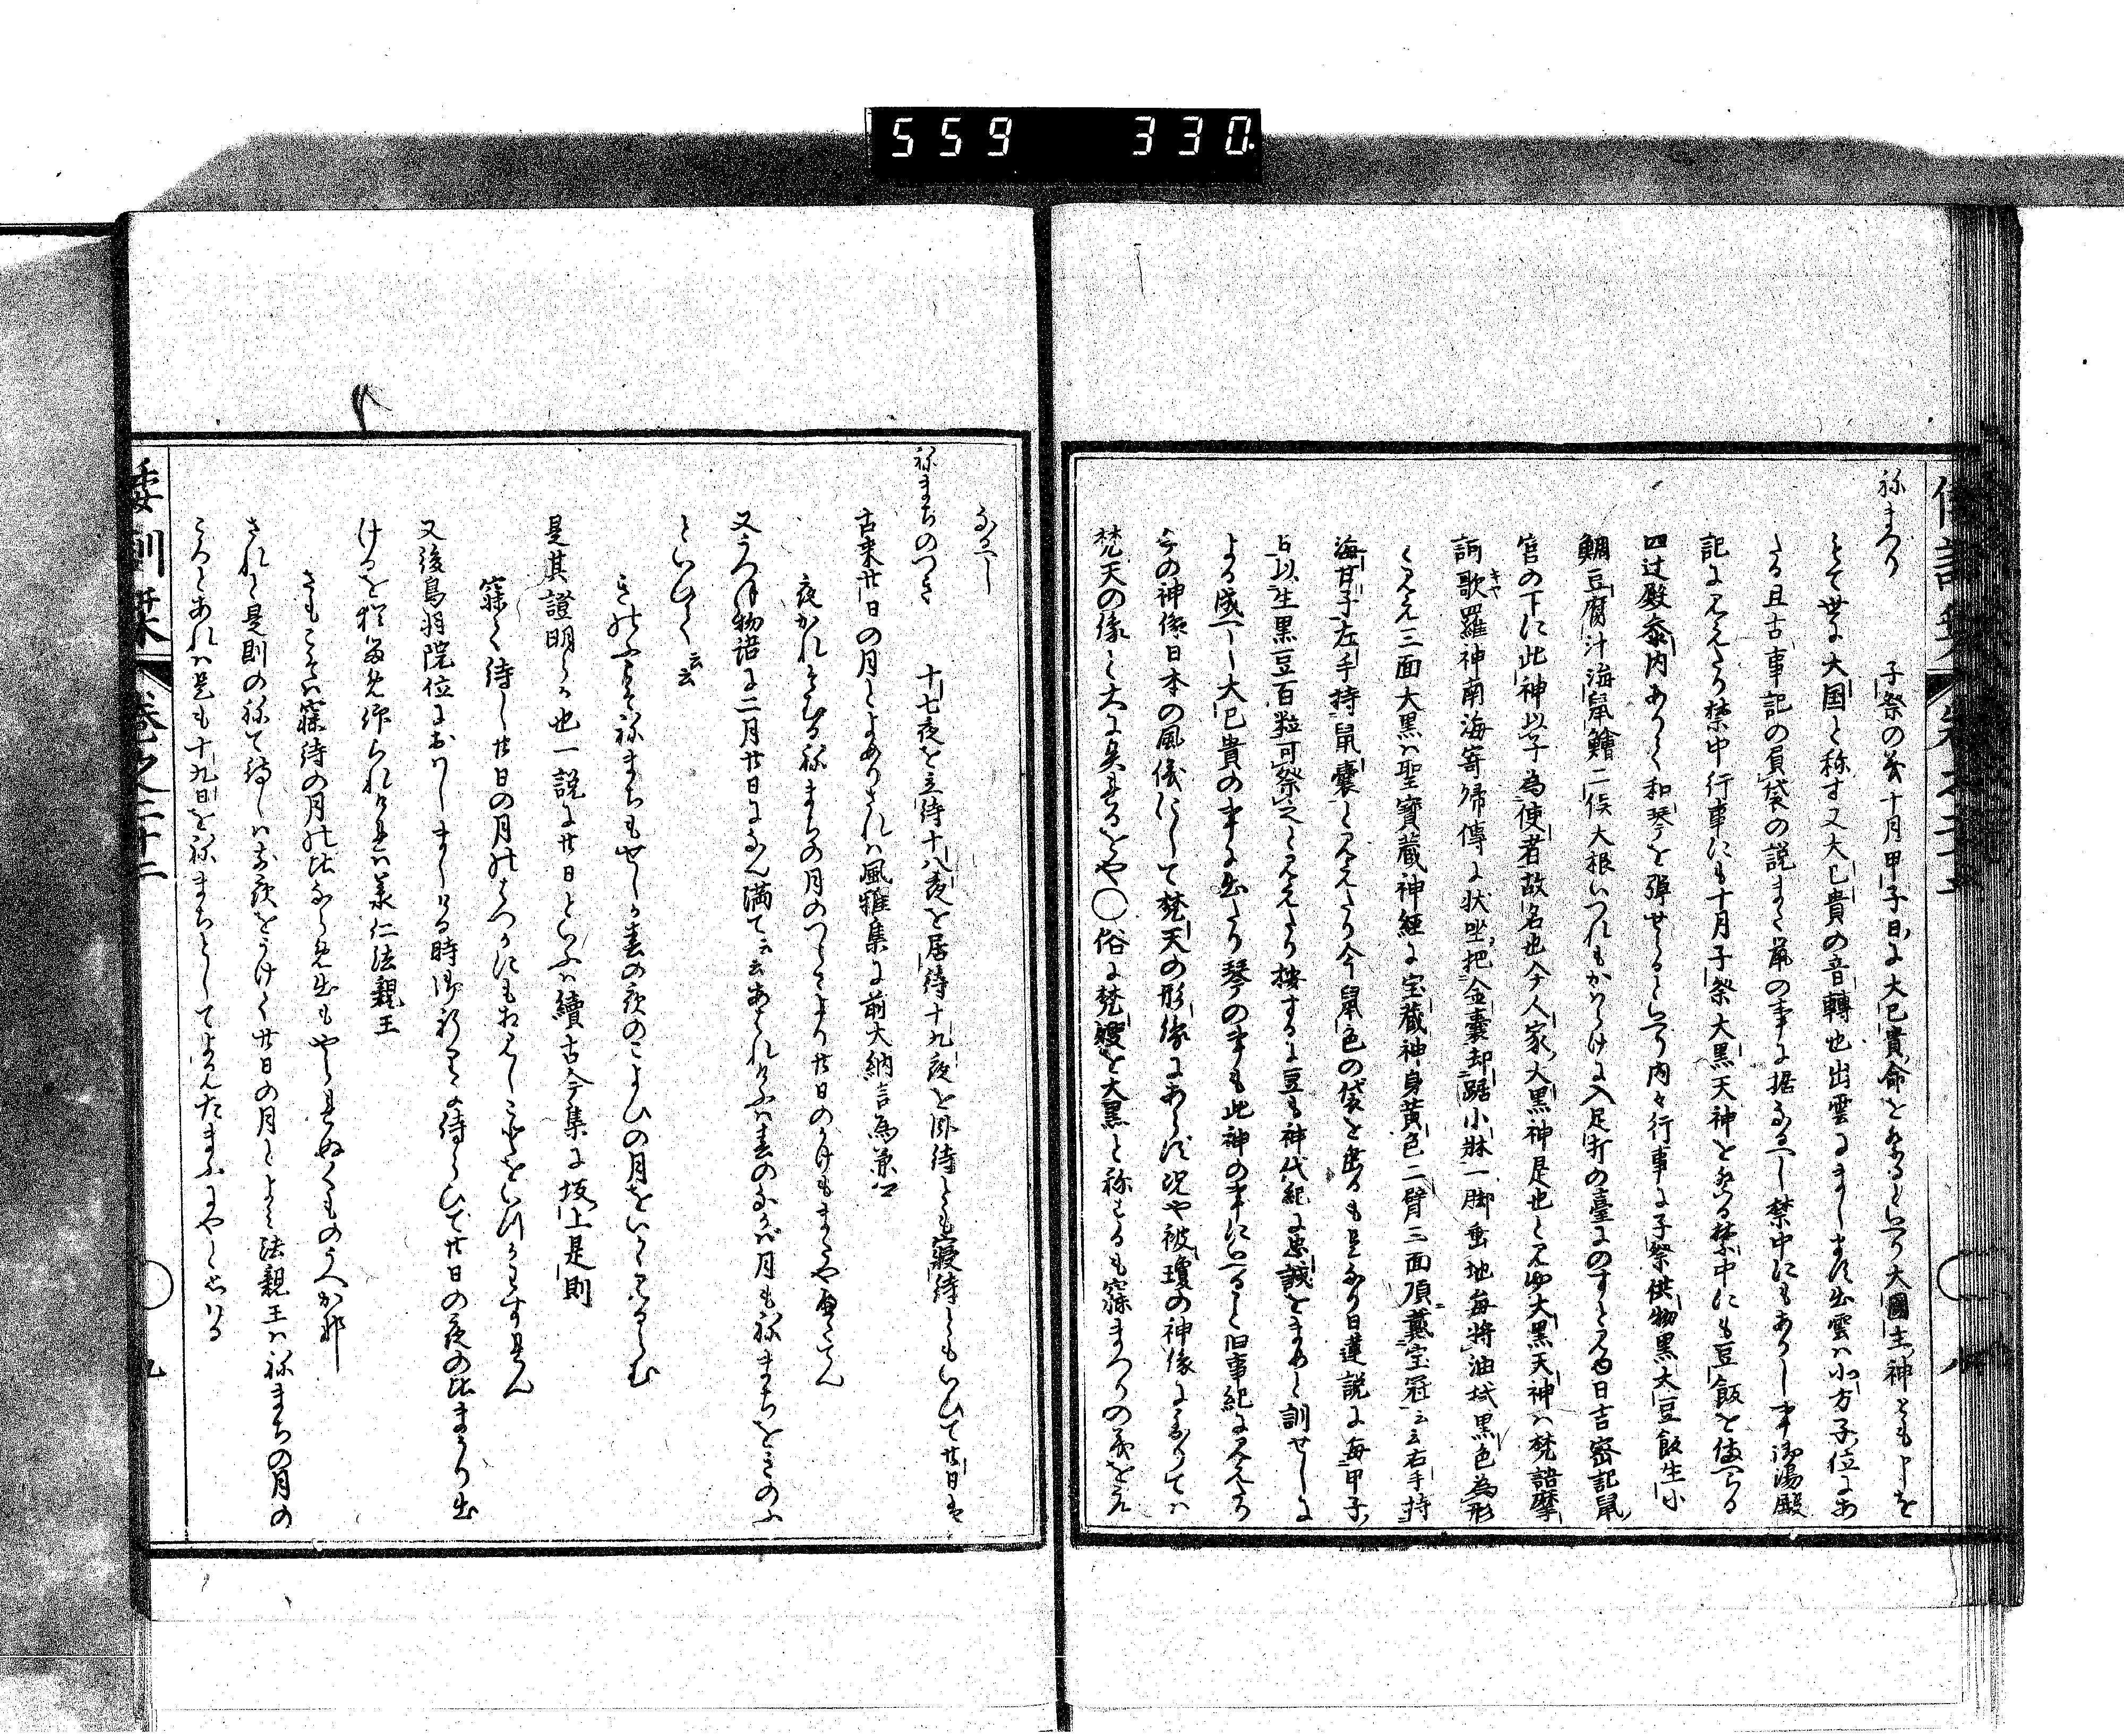 559 330
ねまつり 子祭の義十月甲子日に大己貴命を祭るといへり大国主神とも申を
もて世に大国と称す又大己貴の音轉也出雲にましませは出雲ハ北方子位にあ
たる且古事記の負袋の説また鼠の事に据なるへし禁中にもありし事御湯殿
記に見えたり禁中行事にも十月子祭大黒天神を祭る禁中にも豆飯を備へらる
四辻殿参内ありて和琴を弾せらるといへり内々行事に子祭供物黒大豆飯生小
鯛豆腐汁海鼠鱠二俣大根いつれもかはらけに入足打の臺にのすと見ゆ日吉密記鼠
宮の下に此神以子為使者故名也今人家大黒神是也と見ゆ大黒天神ハ梵語摩
訶歌羅神南海寄帰傳に状坐把金嚢却踞小牀一脚垂地毎将油拭黒色為形
と見え三面大黒ハ聖寶蔵神経に宝蔵神身黄色二臂三面頂戴宝冠云云右手持
海甘子左手持鼠嚢と見えたり今鼠色の袋を出るも是なり日蓮説に毎甲子
日以生黒豆百粒可祭之と見えたり按するに豆も神代紀に忠誠をまめと訓せしに
よる成へし大己貴の事に出たり琴の事も此神の事にいへると旧事紀に見えたり
今の神像日本の風儀にして梵天の形像にあらす况や被瓊の神像に至りてハ
梵天の像と大に異なるをや○俗に梵嫂を大黒と称するも寐まつりの義を元
なるへし
ねまちのつき 十七夜を立待十八夜を居待十九夜を臥待とも寝待ともいひて廿日は
古来廿日の月とよめりされハ風雅集に前大納言為兼卿
夜かれそむるねまちの月のつらさより廿日のかけもまたやへたてん
又うつほ物語に二月廿日になん満て云云あそれけふハ春のなかば月もねまちをきのふ
といひて云云
きのふこそねまちもせしか春の夜のこよひの月をいかゝ見るらむ
是其證明らか也一説に廿日といふハ續古今集に坂上是則
寐て待し廿日の月のはつかにもあひみしことをいつかわすれん
又後鳥羽院位におはしましける時御祈りに侍らひて廿日の夜の比まかり出
けるを程なく召御られけれは承仁法親王
さもこそは寐待の月の比ならめ出もやられぬくものうへかな
されと是則のねて待しハ寐夜をうけて廿日の月とよミ法親王ハねまちの月の
ころとあれハ是も十九日をねまちとしてよみたまふにやと也ける
倭訓栞 巻之二十二 九